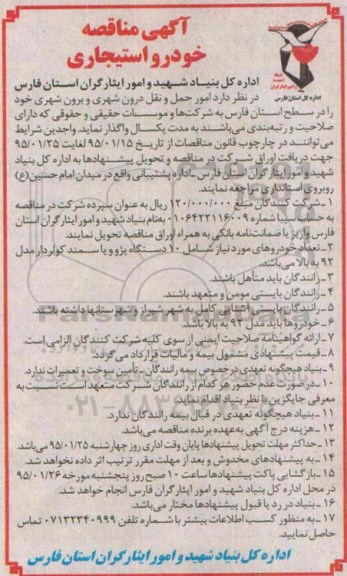 آگهی مناقصه
خودرو استیجاری
اداره کل بنیاد شهید و امور ایثارگران استان فارس
اداره کل استان فارس
در نظر دارد امور حمل و نقل درون شهری و برون شهری خود
را در سطح استان فارس به شرکت‌ها و موسسات حقیقی و حقوقی که دارای
صلاحیت و رتبه‌بندی می‌باشند به مدت یکسال واگذار نماید. واجدین شرایط
می‌توانند در چارچوب قانون مناقصات از تاریخ ۹۵/۰۱/۱۵ لغایت ۹۵/۰۱/۲۵
جهت دریافت اوراق شرکت در مناقصه و تحویل پیشنهادها به اداره کل بنیاد
شهید و امور ایثارگران استان فارس ـ اداره پشتیبانی واقع در میدان امام حسین (ع)
روبروی استانداری مراجعه نمایند.
۱ـ شرکت کنندگان مبلغ ۱۲۰/۰۰۰/۰۰۰ ریال به عنوان سپرده شرکت در مناقصه
به حساب سیبا شماره ۰۱۰۶۴۲۲۱۱۶۰۰۹ به‌نام بنیاد شهید و امور ایثارگران استان
فارس واریز یا ضمانت‌نامه بانکی به همراه اوراق مناقصه تحویل نمایند.
۲ـ تعداد خودروهای مورد نیاز شامل ۱۰ دستگاه پژو و یا سمند کولردار مدل
۹۲ به بالا می‌باشد.
۳ـ رانندگان باید متأهل باشند.
۴ـ رانندگان بایستی مومن و متعهد باشند.
۵ـ رانندگان بایستی آشنایی کامل به شهر شیراز و شهرستانها داشته باشند.
۶ـ خودروها باید مدل ۹۲ به بالا باشد.
۷ـ ارائه گواهینامه صلاحیت ایمنی از سوی کلیه شرکت کنندگان الزامی است.
۸ـ قیمت پیشنهادی مشمول بیمه و مالیات قرارداد می‌گردد.
۹ـ بنیاد هیچگونه تعهدی در خصوص بیمه رانندگان ـ تأمین سوخت و تعمیرات ندارد.
۱۰ـ در صورت عدم حضور هر کدام از رانندگان شرکت متعهد است نسبت به
معرفی جایگزین با نظر بنیاد اقدام نماید.
۱۱ـ بنیاد هیچگونه تعهدی در قبال بیمه رانندگان ندارد.
۱۲ـ هزینه درج آگهی به‌عهده برنده مناقصه می‌باشد.
۱۳ـ حداکثر مهلت تحویل پیشنهادها پایان وقت اداری روز چهارشنبه ۹۵/۰۱/۲۵ می‌باشد.
۱۴ـ به پیشنهادهای مخدوش و بعد از مهلت مقرر ترتیب اثر داده نخواهد شد.
۱۵ـ بازگشایی پاکت پیشنهادها ساعت ۱۰ صبح روز پنجشنبه مورخه ۹۵/۰۱/۲۶
در محل اداره کل بنیاد شهید و امور ایثارگران فارس انجام خواهد شد.
۱۶ـ بنیاد در رد یا قبول پیشنهادها مختار می‌باشد.
۱۷ـ به منظور کسب اطلاعات بیشتر با شماره تلفن ۰۷۱۳۲۳۴۰۹۹۹ تماس
حاصل نمایید.
اداره کل بنیاد شهید و امور ایثارگران استان فارس